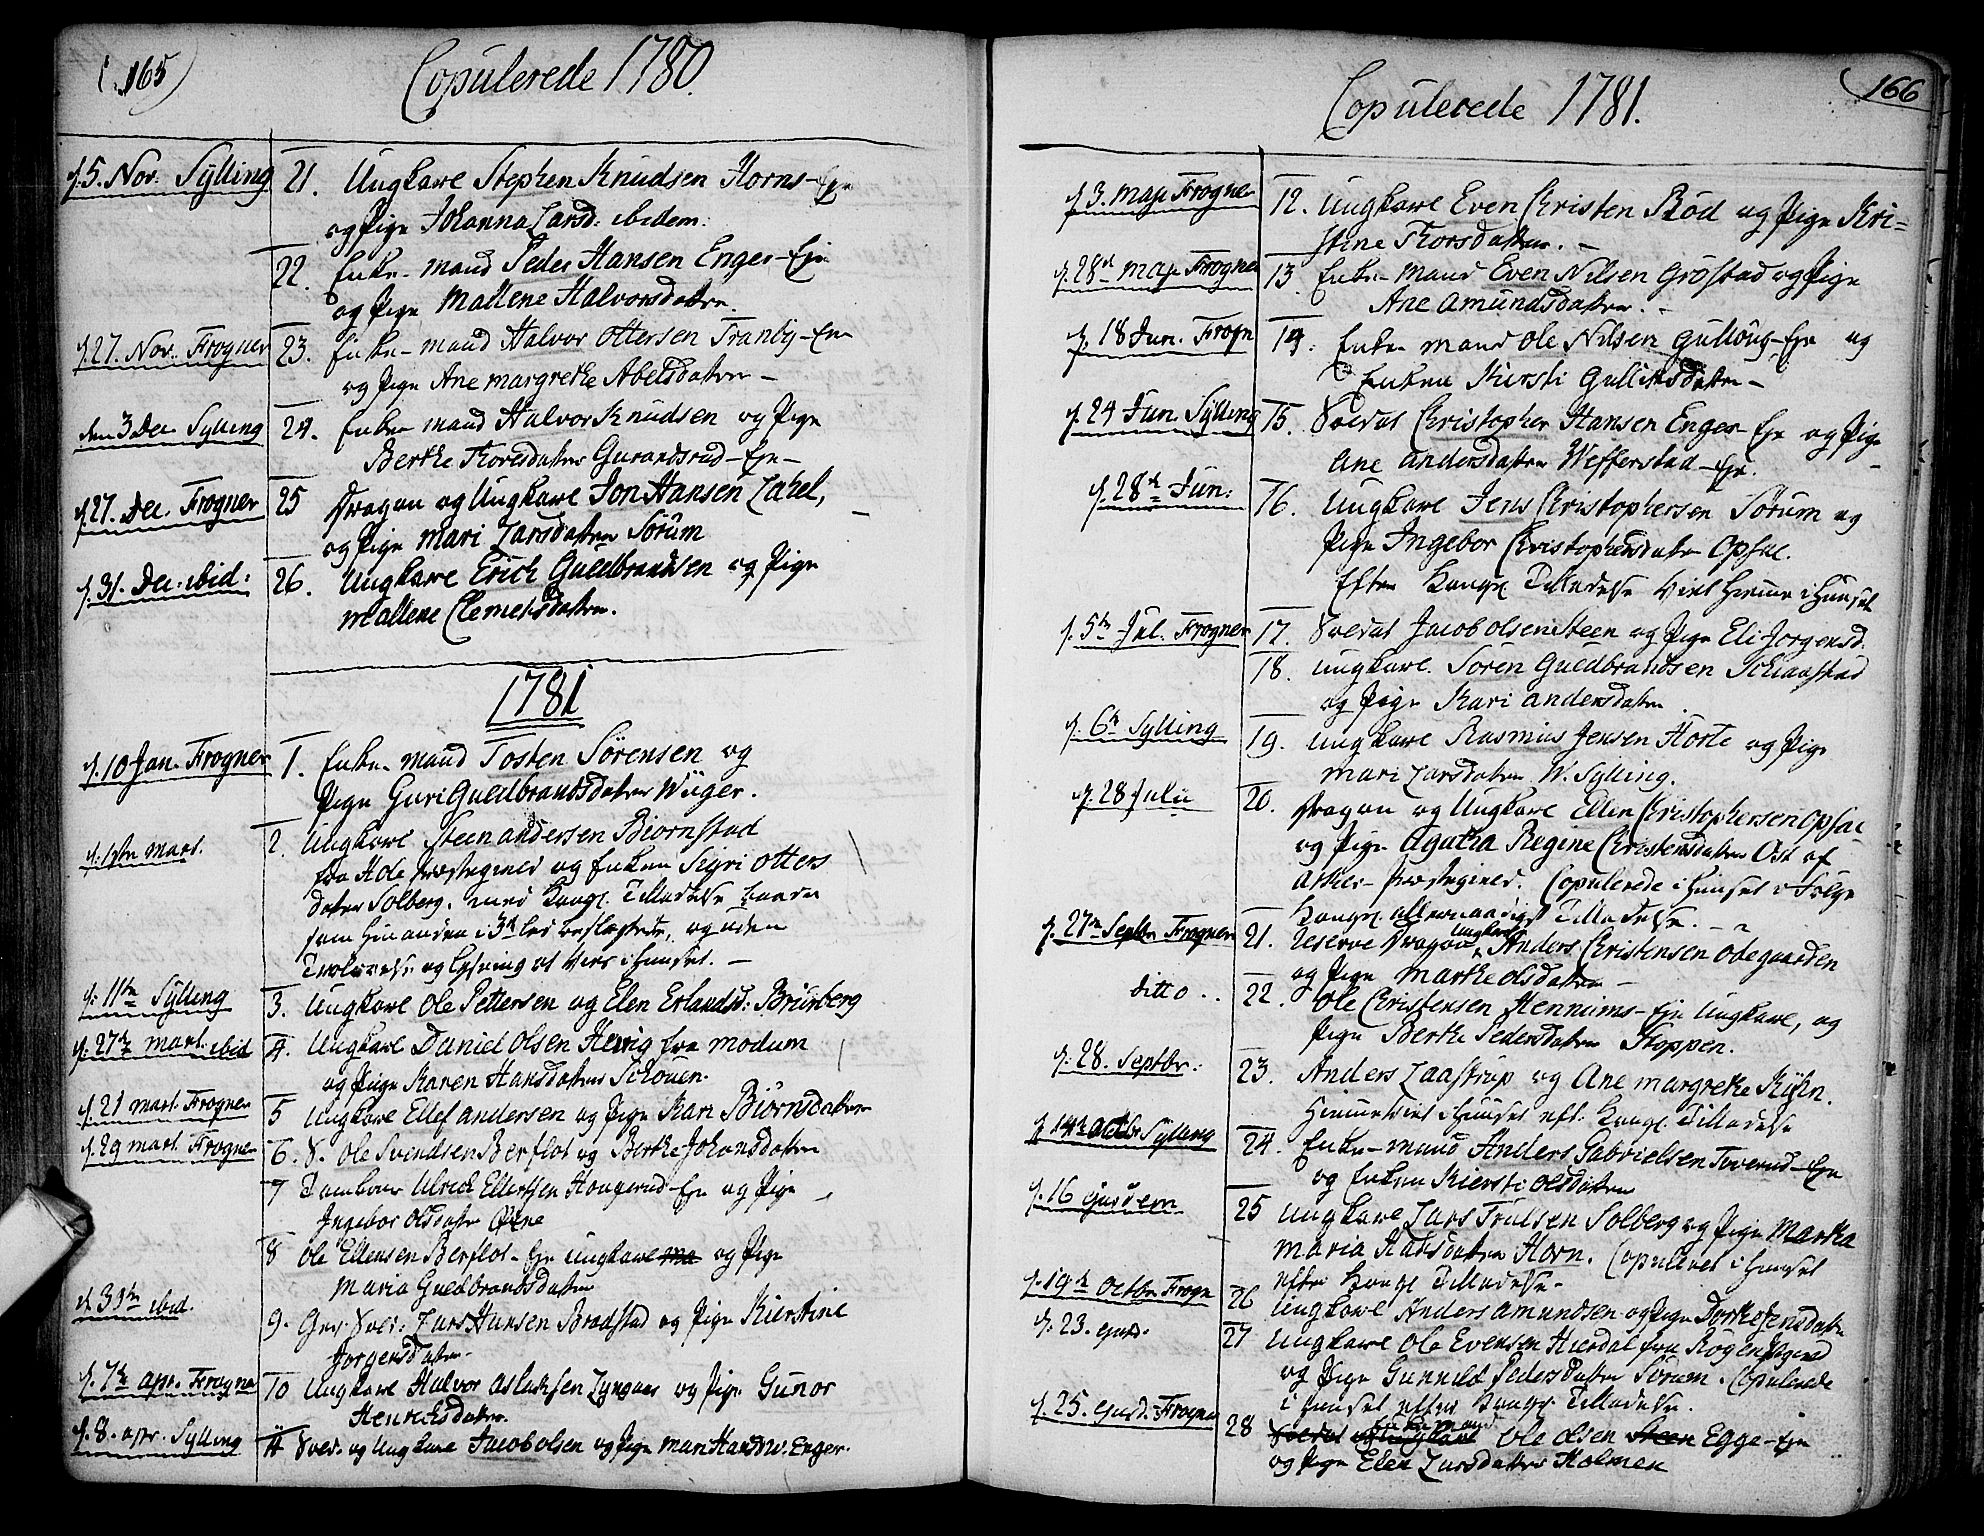 (165)
Copulerede 1780.
d. 5. Nov. Sylling 21. Ungkarl Stephen Knudsen Horns-Eje
og Pige Johanna Larsd. ibidem.
22. Enke-mand Peder Hansen Enger-Eje
og Pige Mallene Halvorsdatter.
d. 27. Nov. Frogner 23. Enke-mand Halvor Ottersen Tranby-Eje
og Pige Ane Margrethe Abelsdatter -
den 3 Dec. Sylling 24. Enke-mand Halvor Knudsen og Pige
Berthe Thoresdatter Gurandsrud-Eje-
d. 27. Dec. Frogner 25 Dragon og Ungkarl Jon Hansen Lahel,
og Pige Mari Larsdatter Sørum
d. 31. Dec. ibid: 26. Ungkarl Erich Guldbrandsen og Pige
Mallene Clemetsdatter.
1781
d. 10 Jan. Frogner 1. Enke-mand Tosten Sørensen og
Pige Guri Guldbrandsdatter Wiiger.
d. 1ste Mart. 2. Ungkarl Steen Andersen Biørnstad
fra Hole Præstegield og Enken Sigri Otters
datter Solberg. med Kongl. Tilladelse
som hinanden i 3die led beslægtede, og uden
Trolovelse og Lysning at vies i Huuset. -
d. 11te Sylling 3. Ungkarl Ole Pettersen og Elen Erlandsd: Bruberg
d. 27de Mart. ibid 4. Ungkarl Daniel Olsen fra Modum
og Pige Karen Hansdatter Schouen.
d. 21 Mart. Frogner 5 Ungkarl Ellef Andersen og Pige Kari Biørnsdatter
d. 29 Mart. Frogner 6. S. Ole Svendsen Berflot og Berthe Johansdatter
7 Tambour Ulrick Ellertsen Haugerud-Eje og Pige
Ingebor Olsdatter
8 Ole Ellensen Berflot-Eje Ungkarl og Pige
Maria Guldbrandsdatter
d. 31te ibid. 9. Gev. Sold. Lars Hansen Bradstad og Pige Kierstine
Jorgensdatter
d. 7de Apr. Frogner 10 Ungkarl Halvor Aslaksen Lyngaas og Pige Gunor
Henrichsdatter.
d. 8. Apr. Sylling 11 Sold. og Ungkarl Jacob Olsen og Pige Mari Hansd. W. Enger.
166
Copulerede 1781.
d. 3. Maji Frogner 12. Ungkarl Even Christen Rød og Pige Kri-
stine Thorsdatter. -
d. 28de Maji Frogner 13. Enke-mand Even Nilsen Grøstad og Pige
Ane Amundsdatter. -
d. 18 Jun. Frogn 14. Enke-mand Ole Nilsen Gulloug-Eje og
Enken Kiersti Gulliksdatter -
d. 24 Jun. Sylling 15. Soldat Christopher Hansen Enger Eje og Pige
Ane Andersdatter Wefferstad-Eje.
d. 28de Jun: 16. Ungkarl Jens Christophersen Sørum og
Pige Ingebor Christophersdatter Opsal.
Efter Kongl. Tilladelse viet hiemme i Huuset
d. 5te Jul. Frogner 17. Soldat Jacob Olsen Steen og Pige Eli Jorgensd.
18. Ungkarl Søren Guldbrandsen Schaastad
og Pige Kari Andersdatter
d. 6te Sylling 19. Ungkarl Rasmus Jensen Horte og Pige
Mari Larsdatter W. Sylling.
d. 28 Julii 20. Dragon og Ungkarl Ellen Christophersen Opsal
og Pige Agatha Regine Christensdatter Ost af
Asker-Præstegield. Copulerede i Huuset i Følge
Kongl. allernaadigst Tilladelse. -
d. 27de Septbr Frogner 21. Reserve Dragon Ungkarl Anders Christensen Odegaarden
og Pige Marthe Olsdatter -
ditto . . 22. Ole Christensen Hennums-Eje Ungkarl, og
Pige Berthe Pedersdatter Stoppen.
d. 28. Septbr. 23. Anders Laastrup og Ane Margrethe Kyhn.
Hiemme viet i Huuset eft. Kongl. Tilladelse
d. 14de Octbr Sylling 24. Enke-mand Anders Gabrielsen Toverud-Eje
og Enken Kiersti Olsdatter
d. 16 ejusdem 25 Ungkarl Lars Trulsen Solberg og Pige Martha
Maria Hansdatter Horn. Copuleret i Huuset
efter Kongl. Tilladelse-
d. 19de Octbr. Frogn 26 Ungkarl Anders Amundsen og Pige Dorthe Jensdatter
d. 23. ejusd. 27 Ungkarl Ole Evensen Hierdal fra Røgen Pgield
og Pige Gunnild Pedersdatter Sørum. Copulerede
i Huuset efter Kongl. Tilladelse.
d. 25. ejusd. Frogner 28 Soldat Ungkarl Enkemand Ole Olsen Steen Egge-Eje
og Pige Elen Larsdatter Holmen